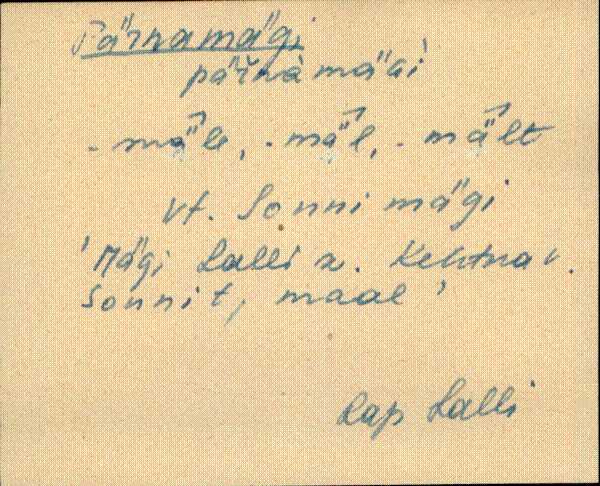 Pärnamägi
pär̆nàmäGì
- mä̀le, - mä̀l, - mä̀lt
Vt. Sonni mägi
'Mägi Lalli k. Kehtna v.
Sonni t, maal'
Rap Lalli